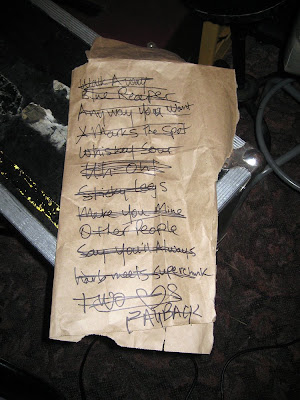 Wait A Way
Blue Reaper
Anyway You Want
X Marks The Spot
Whiskey Sour
Sticky Legs
Make You Mine
Other People
Say You'll Always
Hard meets superchunk
Two
PAYBACK